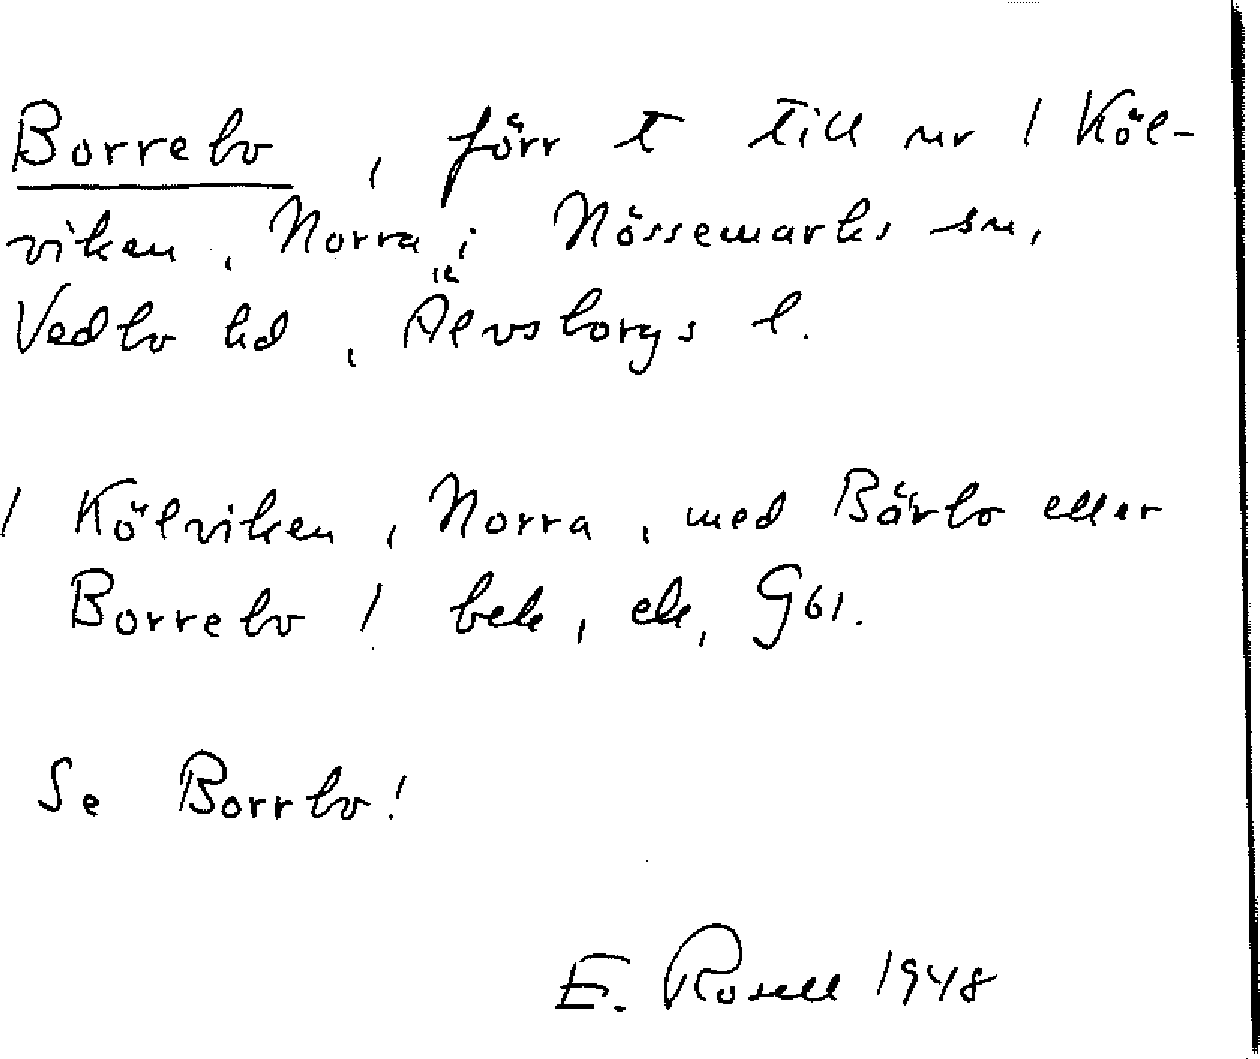 Borrebo, förr t till nr 1 Köl-
viken, Norra i Nössemarks sn,
Vedbo hd, Älvsborgs l.
1 Kölviken, Norra, med Börbo eller
Borrebo ! bek, ek, G61.
Se Borrbo!
E. Rosell 1948